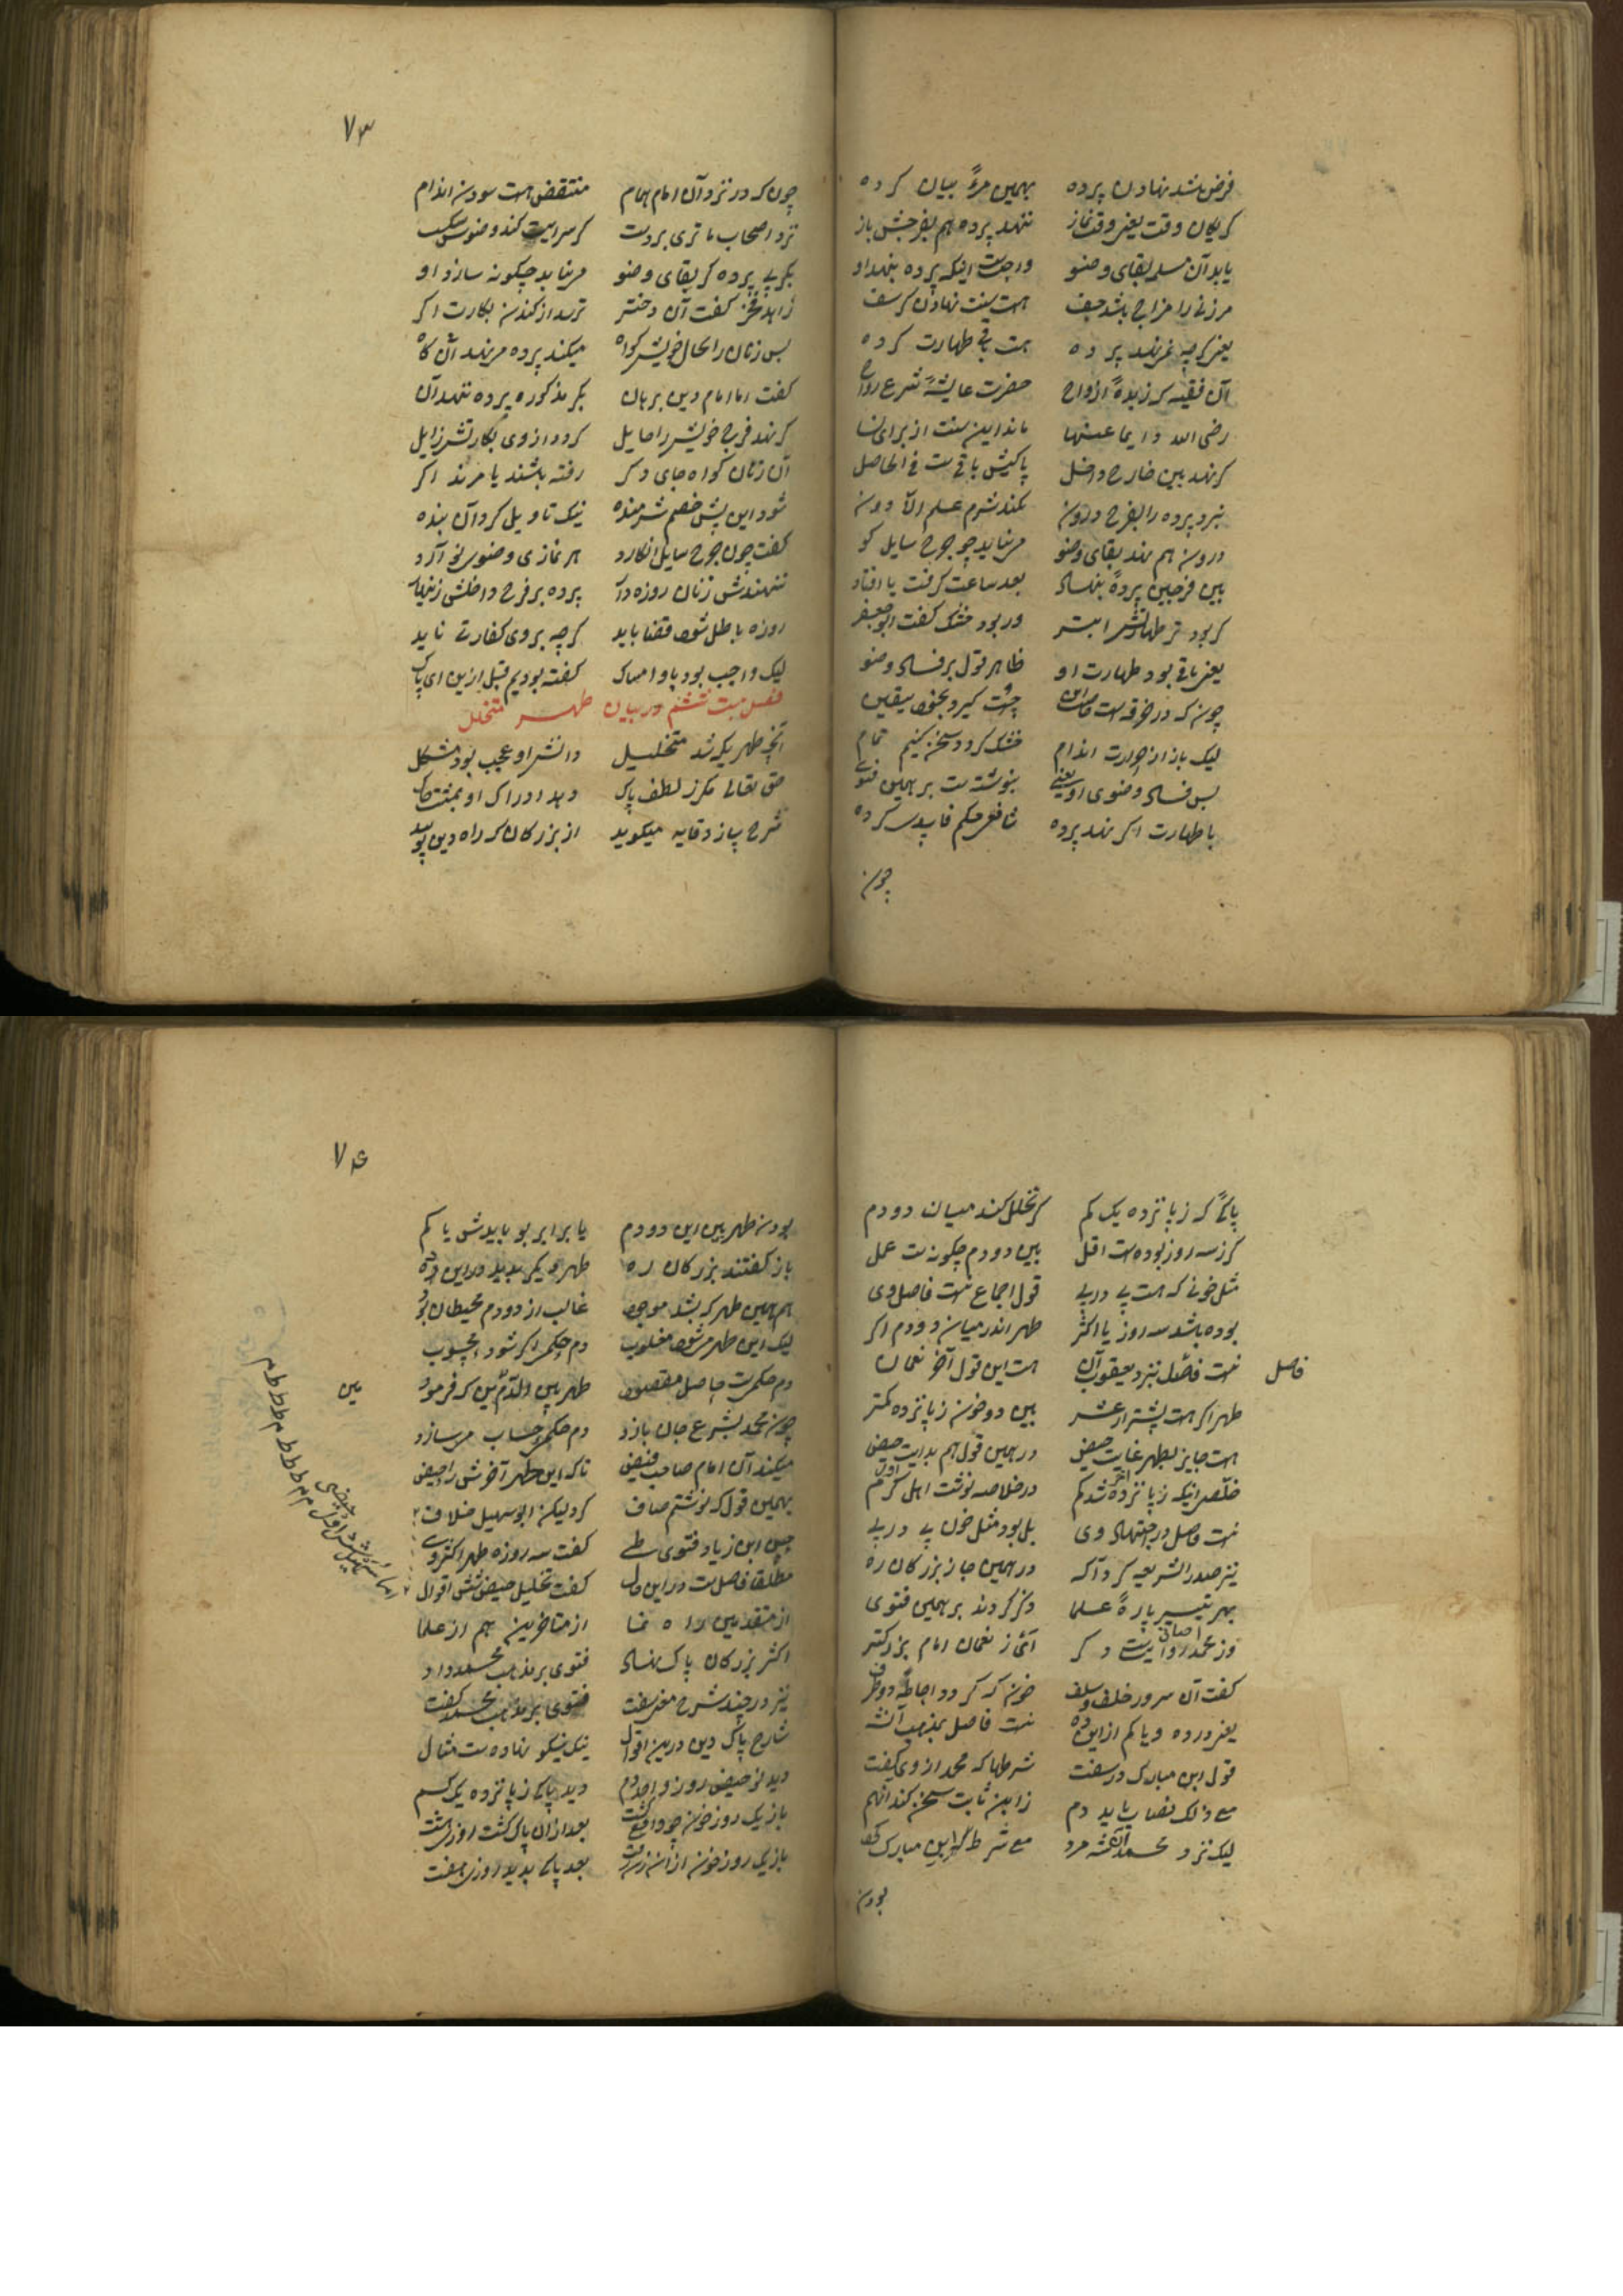 فرض باشد نهادن پرده بهمین مرءً بیان کرده
کر یکان وقت یعنی وقت نماز ننهد پرده هم بفرجش باز
یابد آن مسلم بقای وضو واجبست اینکه پرده بنهد او
مر زنی را مزاج باشد حیف هست سنت نهادن کرسف
یعنی کرچه نمی‌نهد پرده هست باقی طهارت کرده
آن فقیه کزیدهٔ ازواج حضرت عایشه شرع رواج
رضی الله دایما عنها ماند این سنت از برای نسا
کر نهد بین خارج و داخل پاکیش باقی ست فی الحاصل
نبرد پرده را بفرج درون نکند شرم علم الا دون
درون هم نهد بقای وضو می‌نماید چو جرح سایل کو
بین فرجین پرده بنهاد بعد ساعت کرفت یا افتاد
کر بود تر طهارتش ابتر ور بود خشک کفت ابو جعفر
یعنی باقی بود طهارت او ظاهر قول بر فساد وضو
چون که در خرقه است چست کیرد بخود یقین
لیک باز از حرارت اندام خشک کردد سخن کنیم تمام
بس فساد وضوی او یعنی بنوشته ست بر همین فتوی
با طهارت اکر نهد پرده شافعی حکم فاسد کرده
چون
۷۳
چون که در نزد آن امام همام منتقض هست سودن اندام
نزد اصحاب ما تری بر دست کر سرایت کند وضو شکست
بکر بی پرده کر بقای وضو می‌نماید چکونه سازد او
زاهد فخر کفت آن دختر ترسد از کندن بکارت اکر
بس زنان را بحال خویش کواه میکند پرده می‌نهد آن کاه
کفت اما امام دین برهان بکر مذکوره پرده ننهد آن
کر نهد فرج خویش را حایل کردد از وی بکارتش زایل
آن زنان کواه جای دکر رفته باشند یا مرند اکر
شود این پیش خصم شرمنده نیک تاویل کرد آن بنده
کفت چون جرح سایل انکارد هر نمازی وضوی نو آرد
ننهندش زنان روزه دار پرده بر فرج داخلش زنهار
روزه باطل شود قضا باید کرچه بر وی کفارت ناید
لیک واجب بود باو امساک کفته بودیم قبل ازین ای پاک
فصل بیست ششم در بیان طهر متخلل
آنچه طهریکه شد متخلل دانش او عجب بود مشکل
حق تعالی مکر ز لطف پاک دهد ادراک او بمشت خاک
شرح پیاز وقایه میکوید از بزرکان که راه دین پوید
پاکیی کز پانزده یک کم کر تخلل کند میان دو دم
کز سه روز بوده ست اقل بین دو دم چکونه ست عمل
مثل خونی که هست پی در پی قول اجماع نیست فاصل وی
بوده باشد سه روز یا اکثر طهر اندر میان دو دم اکر
نیست فاصل بنزد یعقوب آن هست این قول آخر نعمان
فاصل
طهر اکر هست بیشتر از عشر بین دو خون ز پانزده کمتر
هست جایز بطهر غایت حیض در همین قول هم بدایت حیض
خلص اینکه ز پانزده شد کم در خلاصه نوشت اهل کرم
نیست فاصل در اجتهاد وی بل بود مثل خون پی در پی
نیز صدر الشریعه کرد آکه در همین جا ز بزرکان ره
بهر تیسیر پارهٔ علما ذکر کردند بر همین فتوی
وز محمد روایت دکر آنی ز نعمان امام بزرکتر
کفت آن سرور خلف و سلف خون که کردد احاطه دو طرف
یعنی در ده و یا کم از این ده نیست فاصل بمذهب آن شه
قول ابن مبارک در سفت شرطها که محمد از وی کفت
مع ذلک نصاب باید دم زاین ثابت سخن کند افهم
لیک نزد محمد آن شه مرد مع شرط کر ابن مبارک کرد
بودن
۷۴
بودن طهر بین این دو دم یا برابر بو بایدش یا کم
باز کفتند بزرکان ره طهر دیکر پدید در این ده
هم همین طهر که بشد موجود غالب از دو دم محیطان بود
لیک این طهر می‌شود مغلوب دم حکمی اکر شود محسوب
دم حکمی ست حاصل مقصود طهر بین الدم بین که فرمود
بین
چون محمد بشرع جان بازد دم حکمی حساب می‌سازد
میکند آن امام صاحب فیض تا که این طهر آخرش را حیض
بهمین قول که نوشتم صاف کرد لیکن ابو سهیل خلاف
حسن ابن زیاد فتوی طی کفت سه روزه طهر اکثر وی
مطلقا فاصل ست در این حال کفت تخلیل حیض شش اقوال
از متقدمین راه نما از متاخرین هم از علما
اکثر بزرکان پاک نهاد فتوی بر مذهب محمد داد
نیز در چند شرح معنی سفت فتوی بر مذهب محمد کفت
شارح پاک دین درین اقوال نیک نیکو نهاده ست مثال
دید نو حیض روز واحد دم دید پاکی ز پانزده یک کم
باز یک روز خون چو واقع کشت بعد از آن پاک کشت روز هشت
باز یک روز خون از آن زن رفت بعد پاکی پدید روز هفت